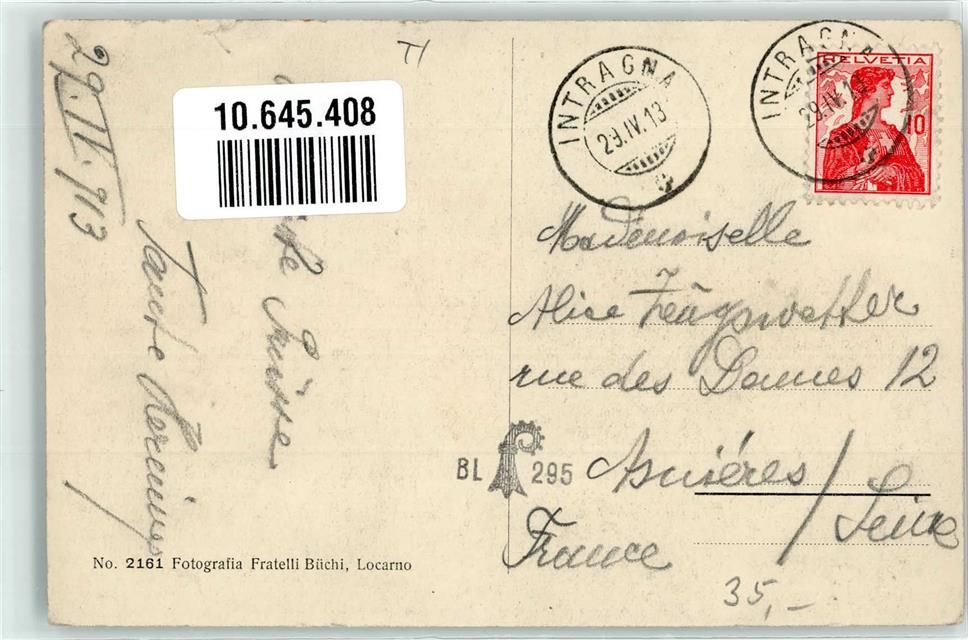 29. IV. 913
TI
10.645.408
Grüsse
Tante
INTRAGNA
29.IV.13
INTRAGNA
29.IV.13
HELVETIA
10
Mademoiselle
Alice Zeugswetter
rue des Dames 12
BL 295
Asniéres / Seine
France
No. 2161 Fotografia Fratelli Büchi, Locarno
35,-